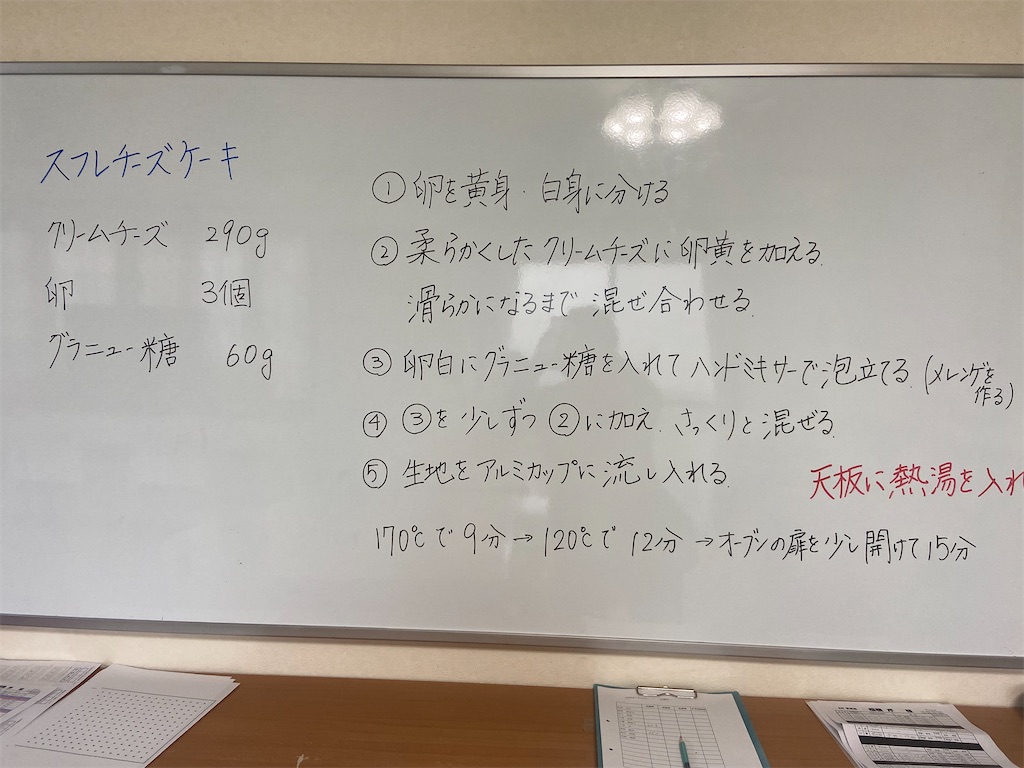 スフレチーズケーキ
クリームチーズ 290g
卵 3個
グラニュー糖 60g
① 卵を黄身・白身に分ける
② 柔らかくしたクリームチーズに卵黄を加える.
滑らかになるまで混ぜ合わせる.
③ 卵白にグラニュー糖を入れてハンドミキサーで泡立てる.(メレンゲを
作る)
④ ③を少しずつ②に加え.さっくりと混ぜる.
⑤ 生地をアルミカップに流し入れる.
天板に熱湯を入れ
170℃で9分→120℃で12分→オーブンの扉を少し開けて15分